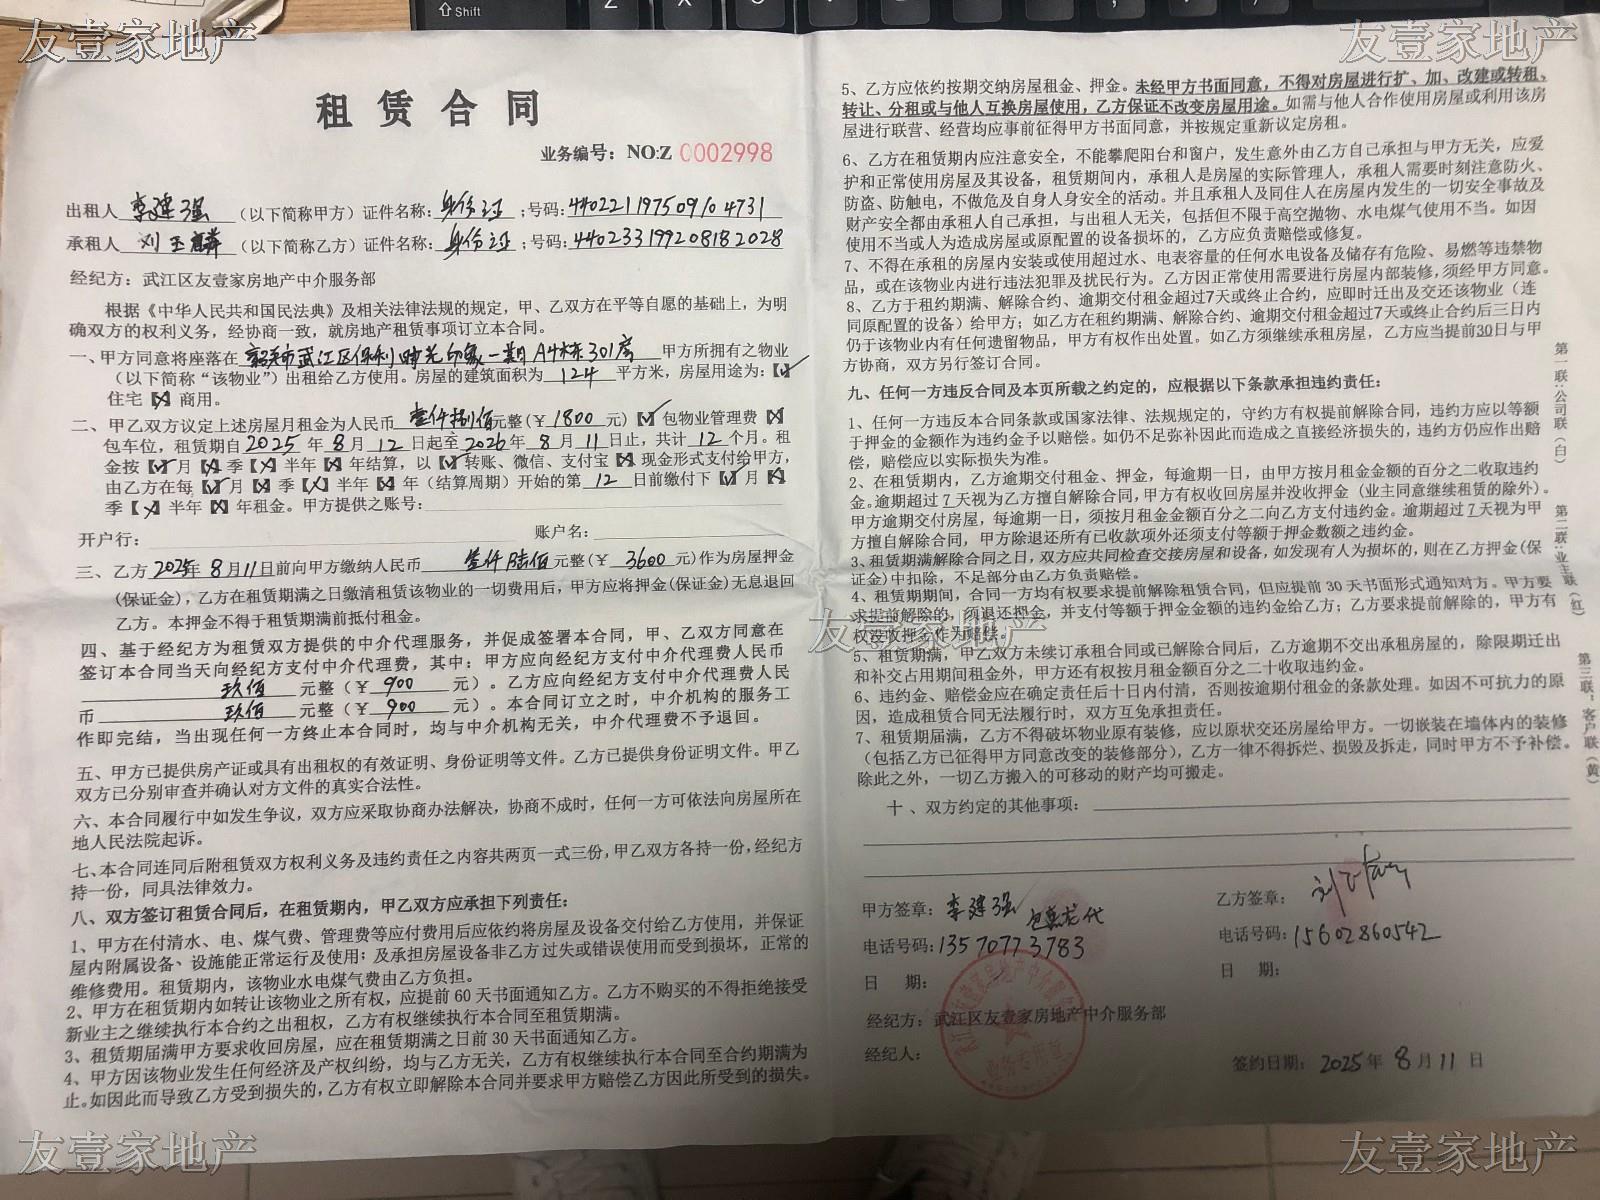 友壹家地产
友壹家地产
Shift
租赁合同
业务编号：NO:Z 0002998
出租人 李建强 （以下简称甲方）证件名称：身份证；号码：440221197509104731
承租人 刘玉麟 （以下简称乙方）证件名称：身份证；号码：440233199208182028
经纪方：武江区友壹家房地产中介服务部
根据《中华人民共和国民法典》及相关法律法规的规定，甲、乙双方在平等自愿的基础上，为明
确双方的权利义务，经协商一致，就房地产租赁事项订立本合同。
一、甲方同意将座落在 韶关市武江区保利时光印象一期A4栋301房 甲方所拥有之物业
（以下简称“该物业”）出租给乙方使用。房屋的建筑面积为 124 平方米，房屋用途为：【✓】
住宅【✗】商用。
二、甲乙双方议定上述房屋月租金为人民币 壹仟捌佰元整（￥1800 元）【✓】包物业管理费【✗】
包车位，租赁期自2025年8月12日起至2026年8月11日止，共计12个月。租
金按【✓】月【✗】季【✗】半年【✗】年结算，以【✓】转账、微信、支付宝【✗】现金形式支付给甲方，
由乙方在每【✓】月【✗】季【✗】半年【✗】年（结算周期）开始的第 12 日前缴付下【✓】月【✗】
季【✗】半年【✗】年租金。甲方提供之账号：
开户行： 账户名：
三、乙方2025年8月11日前向甲方缴纳人民币 叁仟陆佰元整（￥ 3600 元）作为房屋押金
(保证金），乙方在租赁期满之日缴清租赁该物业的一切费用后，甲方应将押金(保证金）无息退回
乙方。本押金不得于租赁期满前抵付租金。
四、基于经纪方为租赁双方提供的中介代理服务，并促成签署本合同，甲、乙双方同意在
签订本合同当天向经纪方支付中介代理费，其中：甲方应向经纪方支付中介代理费人民币
玖佰 元整（￥ 900 元）。乙方应向经纪方支付中介代理费人民
币 玖佰 元整（￥ 900 元）。本合同订立之时，中介机构的服务工
作即完结，当出现任何一方终止本合同时，均与中介机构无关，中介代理费不予退回。
五、甲方已提供房产证或具有出租权的有效证明、身份证明等文件。乙方已提供身份证明文件。甲乙
双方已分别审查并确认对方文件的真实合法性。
六、本合同履行中如发生争议，双方应采取协商办法解决，协商不成时，任何一方可依法向房屋所在
地人民法院起诉。
七、本合同连同后附租赁双方权利义务及违约责任之内容共两页一式三份，甲乙双方各持一份，经纪方
持一份，同具法律效力。
八、双方签订租赁合同后，在租赁期内，甲乙双方应承担下列责任：
1、甲方在付清水、电、煤气费、管理费等应付费用后应依约将房屋及设备交付给乙方使用，并保证
屋内附属设备、设施能正常运行及使用；及承担房屋设备非乙方过失或错误使用而受到损坏，正常的
维修费用。租赁期内，该物业水电煤气费由乙方负担。
2、甲方在租赁期内如转让该物业之所有权，应提前60天书面通知乙方。乙方不购买的不得拒绝接受
新业主之继续执行本合约之出租权，乙方有权继续执行本合同至租赁期满。
3、租赁期届满甲方要求收回房屋，应在租赁期满之日前30天书面通知乙方。
4、甲方因该物业发生任何经济及产权纠纷，均与乙方无关，乙方有权继续执行本合同至合约期满为
止。如因此而导致乙方受到损失的，乙方有权立即解除本合同并要求甲方赔偿乙方因此所受到的损失。
5、乙方应依约按期交纳房屋租金、押金。未经甲方书面同意，不得对房屋进行扩、加、改建或转租、
转让、分租或与他人互换房屋使用，乙方保证不改变房屋用途。如需与他人合作使用房屋或利用该房
屋进行联营、经营均应事前征得甲方书面同意，并按规定重新议定房租。
6、乙方在租赁期内应注意安全，不能攀爬阳台和窗户，发生意外由乙方自己承担与甲方无关，应爱
护和正常使用房屋及其设备，租赁期间内，承租人是房屋的实际管理人，承租人需要时刻注意防火、
防盗、防触电，不做危及自身人身安全的活动。并且承租人及同住人在房屋内发生的一切安全事故及
财产安全都由承租人自己承担，与出租人无关，包括但不限于高空抛物、水电煤气使用不当。如因
使用不当或人为造成房屋或原配置的设备损坏的，乙方应负责赔偿或修复。
7、不得在承租的房屋内安装或使用超过水、电表容量的任何水电设备及储存有危险、易燃等违禁物
品，或在该物业内进行违法犯罪及扰民行为。乙方因正常使用需要进行房屋内部装修，须经甲方同意。
8、乙方于租约期满、解除合约、逾期交付租金超过7天或终止合约，应即时迁出及交还该物业（连
同原配置的设备）给甲方；如乙方在租约期满、解除合约、逾期交付租金超过7天或终止合约后三日内
仍于该物业内有任何遗留物品，甲方有权作出处置。如乙方须继续承租房屋，乙方应当提前30日与甲
方协商，双方另行签订合同。
九、任何一方违反合同及本页所载之约定的，应根据以下条款承担违约责任：
1、任何一方违反本合同条款或国家法律、法规规定的，守约方有权提前解除合同，违约方应以等额
于押金的金额作为违约金予以赔偿。如仍不足弥补因此而造成之直接经济损失的，违约方仍应作出赔
偿，赔偿应以实际损失为准。
2、在租赁期内，乙方逾期交付租金、押金，每逾期一日，由甲方按月租金金额的百分之二收取违约
金。逾期超过 7 天视为乙方擅自解除合同，甲方有权收回房屋并没收押金（业主同意继续租赁的除外）。
甲方逾期交付房屋，每逾期一日，须按月租金金额百分之二向乙方支付违约金。逾期超过 7 天视为甲
方擅自解除合同，甲方除退还所有已收款项外还须支付等额于押金数额之违约金。
3、租赁期满解除合同之日，双方应共同检查交接房屋和设备，如发现有人为损坏的，则在乙方押金(保
证金)中扣除，不足部分由乙方负责赔偿。
4、租赁期期间，合同一方均有权要求提前解除租赁合同，但应提前30天书面形式通知对方。甲方要
求提前解除的，须退还押金，并支付等额于押金金额的违约金给乙方；乙方要求提前解除的，甲方有
权没收押金作为赔偿。
5、租赁期满，甲乙双方未续订承租合同或已解除合同后，乙方逾期不交出承租房屋的，除限期迁出
和补交占用期间租金外，甲方还有权按月租金额百分之二十收取违约金。
6、违约金、赔偿金应在确定责任后十日内付清，否则按逾期付租金的条款处理。如因不可抗力的原
因，造成租赁合同无法履行时，双方互免承担责任。
7、租赁期届满，乙方不得破坏物业原有装修，应以原状交还房屋给甲方。一切嵌装在墙体内的装修
（包括乙方已征得甲方同意改变的装修部分），乙方一律不得拆烂、损毁及拆走，同时甲方不予补偿。
除此之外，一切乙方搬入的可移动的财产均可搬走。
十、双方约定的其他事项：
甲方签章：李建强 代
电话号码：13570773783
日 期：
经纪方：武江区友壹家房地产中介服务部
经纪人：
乙方签章：
电话号码：15602860542
日 期：
签约日期：2025年 8 月 11 日
业务专用章
第一联:公司联（白）
第二联:业主联（红）
第三联:客户联（黄）
友壹家地产
友壹家地产
友壹家地产